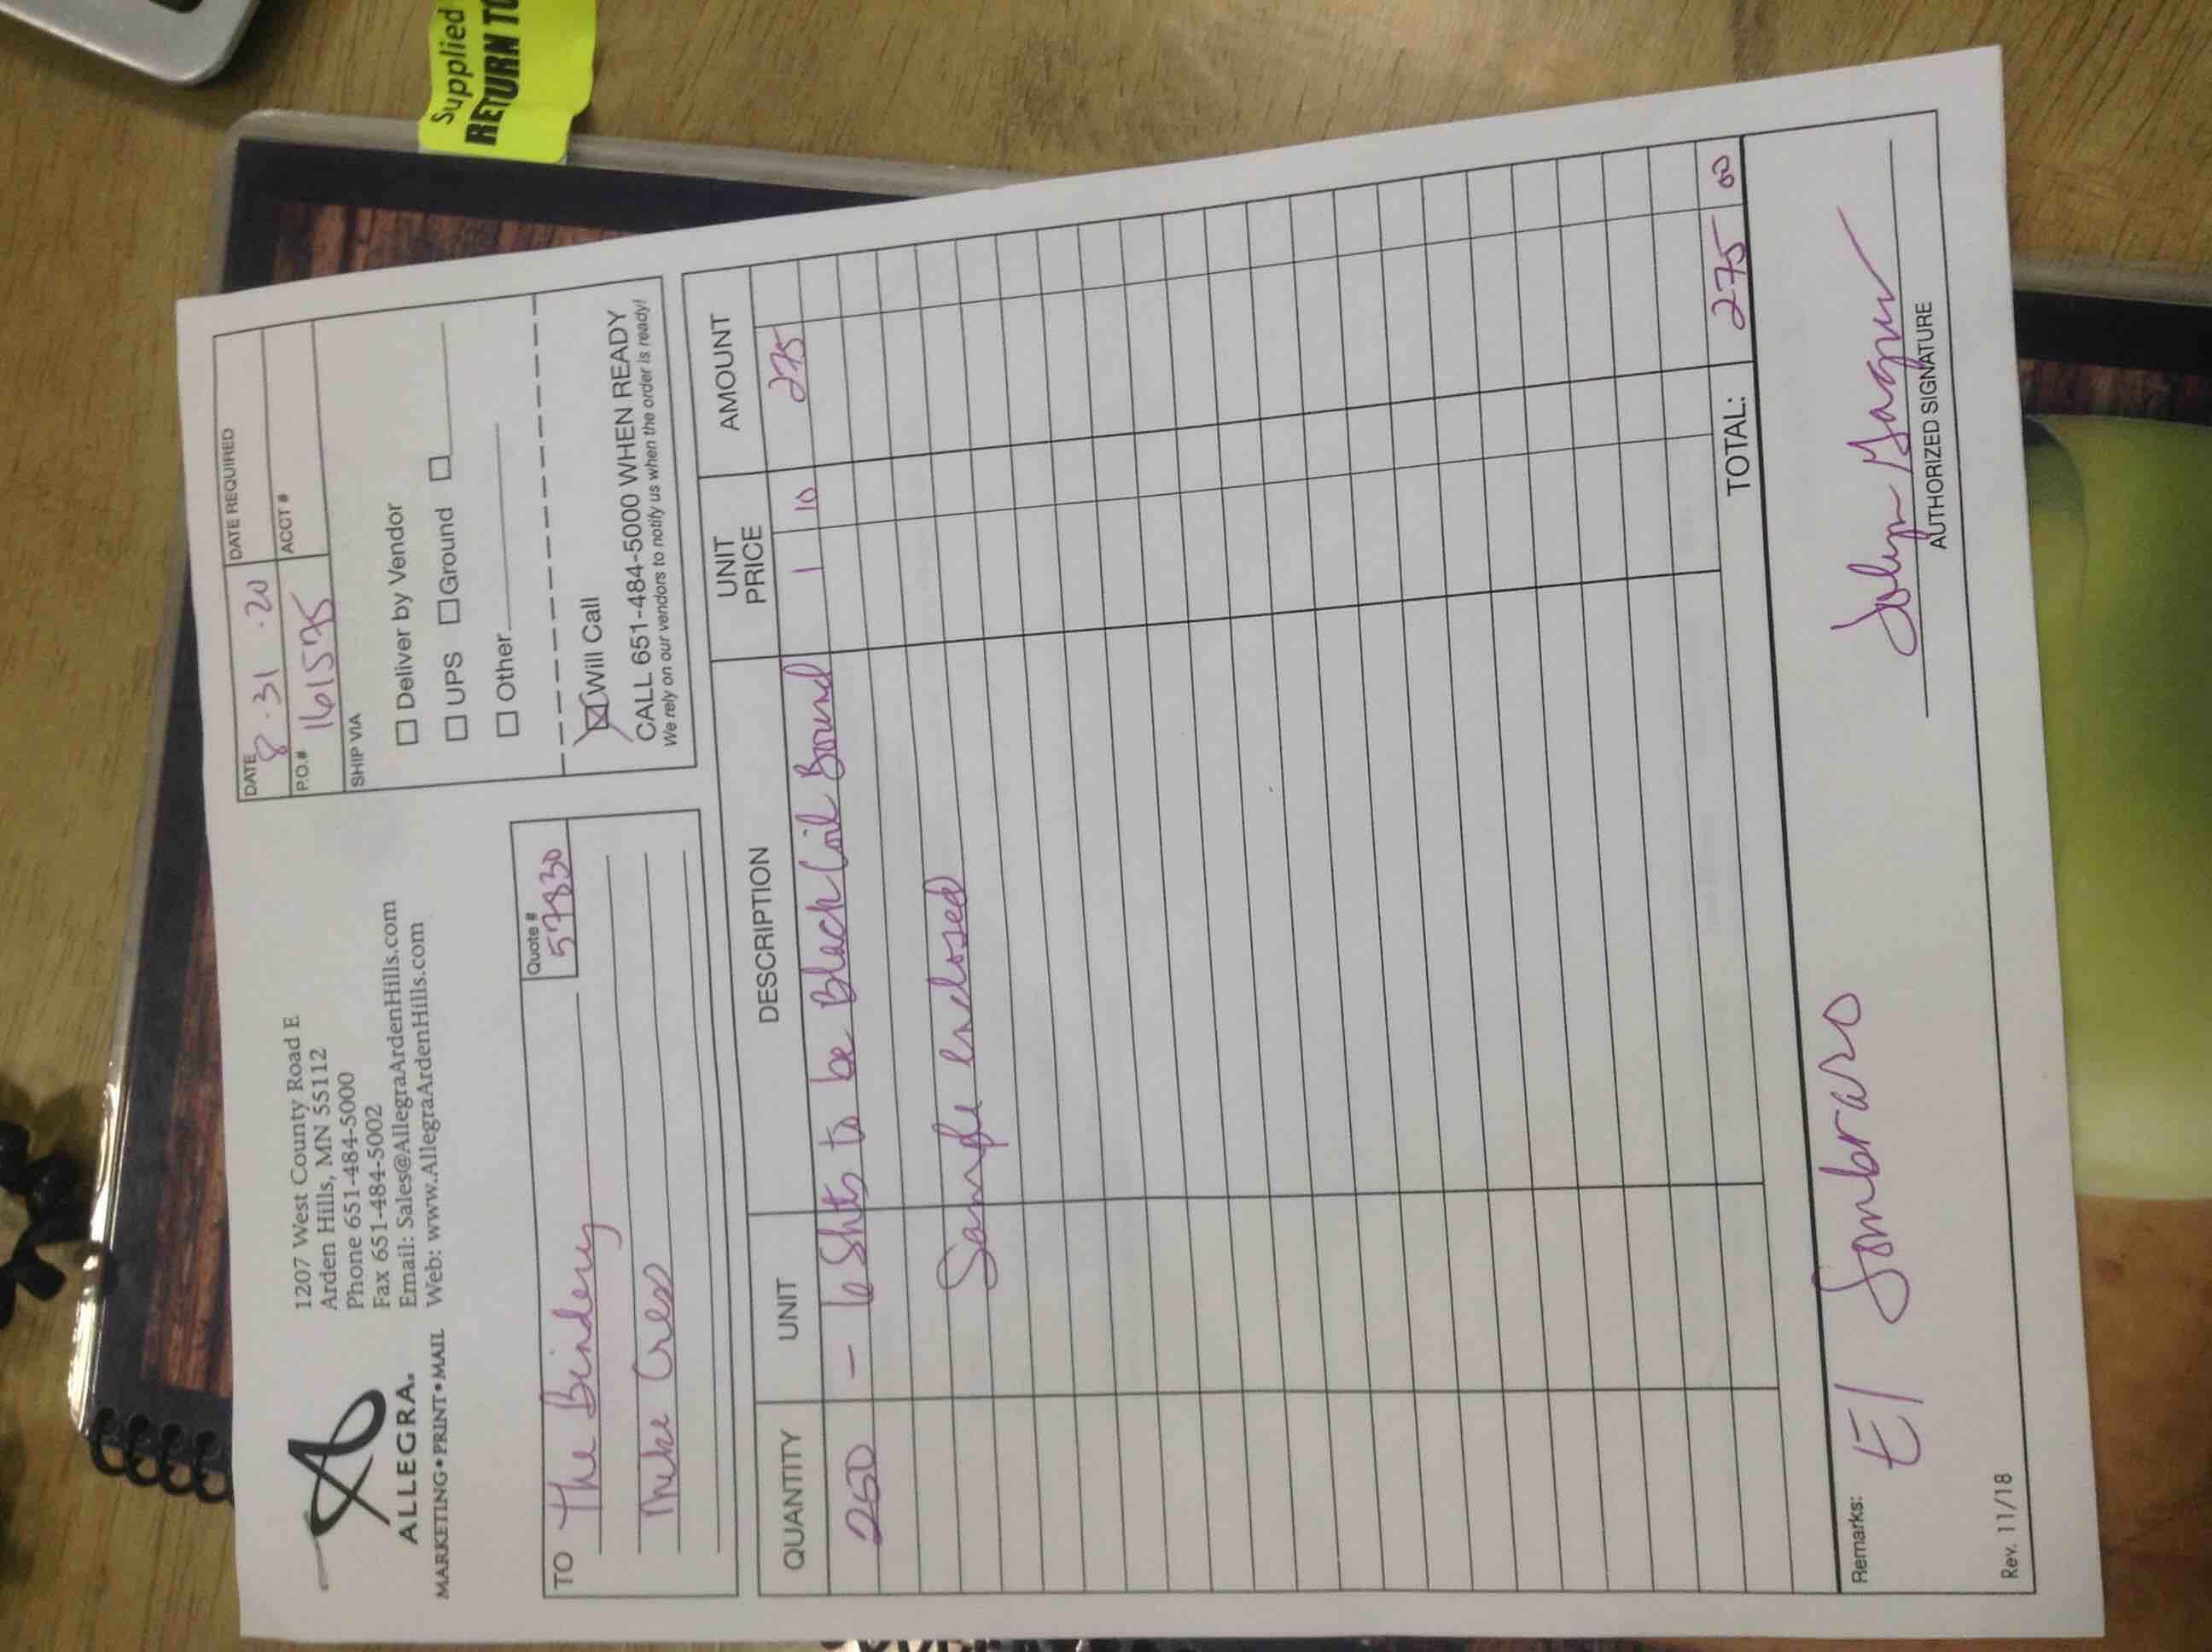 ALLEGRA.
MARKETING•PRINT•MAIL
1207 West County Road E
Arden Hills, MN 55112
Phone 651-484-5000
Fax 651-484-5002
Email: Sales@AllegraArdenHills.com
Web: www.AllegraArdenHills.com
DATE 8.31.20 DATE REQUIRED
P.O.# 161575 ACCT #
SHIP VIA
Deliver by Vendor
UPS Ground
Other
Will Call
CALL 651-484-5000 WHEN READY
We rely on our vendors to notify us when the order is ready!
Quote #
57830
TO The Bindery
Mike Cress
QUANTITY UNIT DESCRIPTION UNIT PRICE AMOUNT
250 — 6 Shts to be Black Coil Bound 1 10 275
Sample Enclosed
TOTAL: 275 00
Remarks:
El Sombraro
AUTHORIZED SIGNATURE
Rev. 11/18
Supplied
RETURN TO